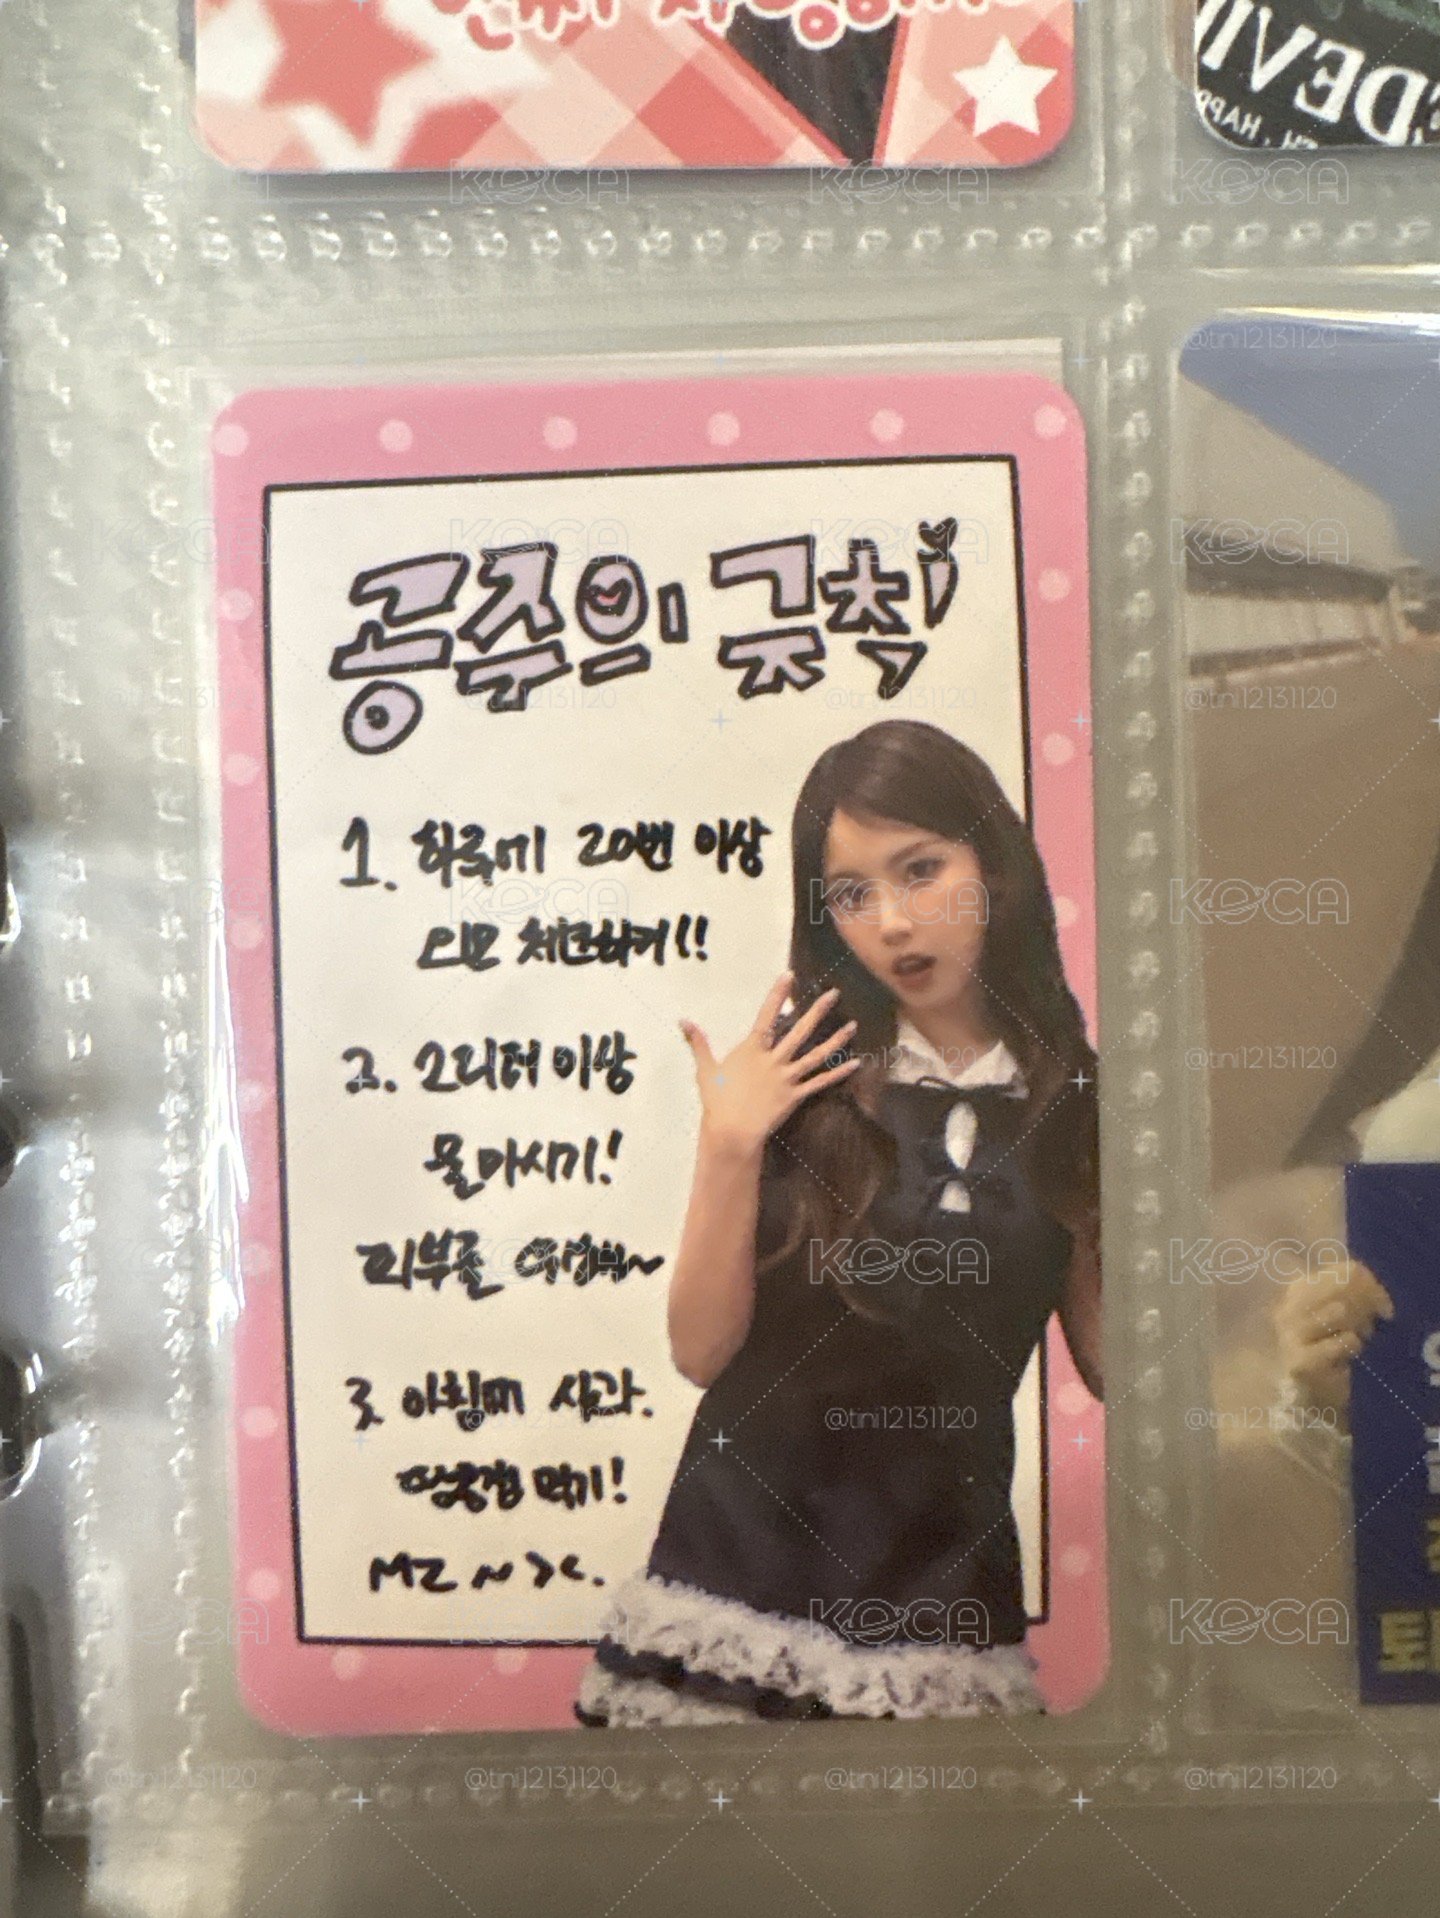 DEVI
HAPP
공주의 규칙!
1. 하루에 20번 이상
외모 체크하기!!
2. 2리터 이상
물 마시기!
피부를 위해~
3. 아침에 사과.
땅콩잼 먹기!
MZ ~ ><.
KOCA
@tni12131120